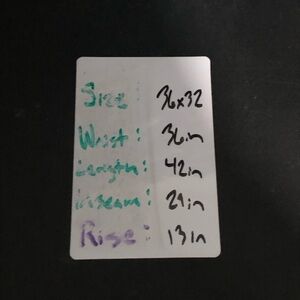 Size: 36x32
Waist: 36in
Length: 42in
Inseam: 29in
Rise: 13in